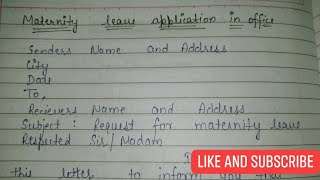 Maternity leave application in office
Senders Name and Address
City
Date
To,
Recievers Name and Address
Subject : Request for maternity leave
Respected Sir/Madam
this letter to inform you that
LIKE AND SUBSCRIBE